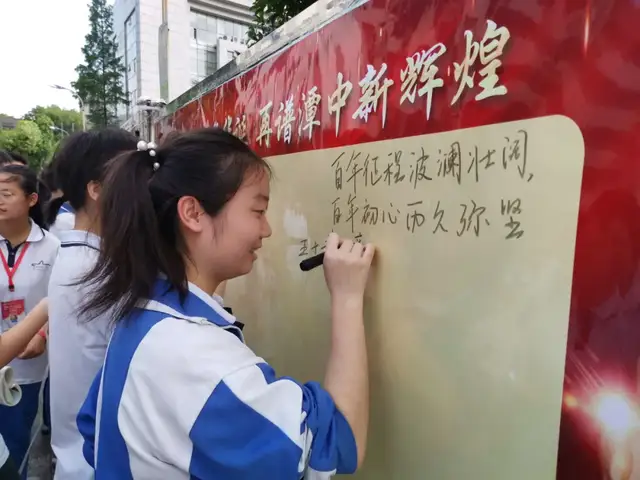 再谱潭中新辉煌
百年征程波澜壮阔,
百年初心历久弥坚